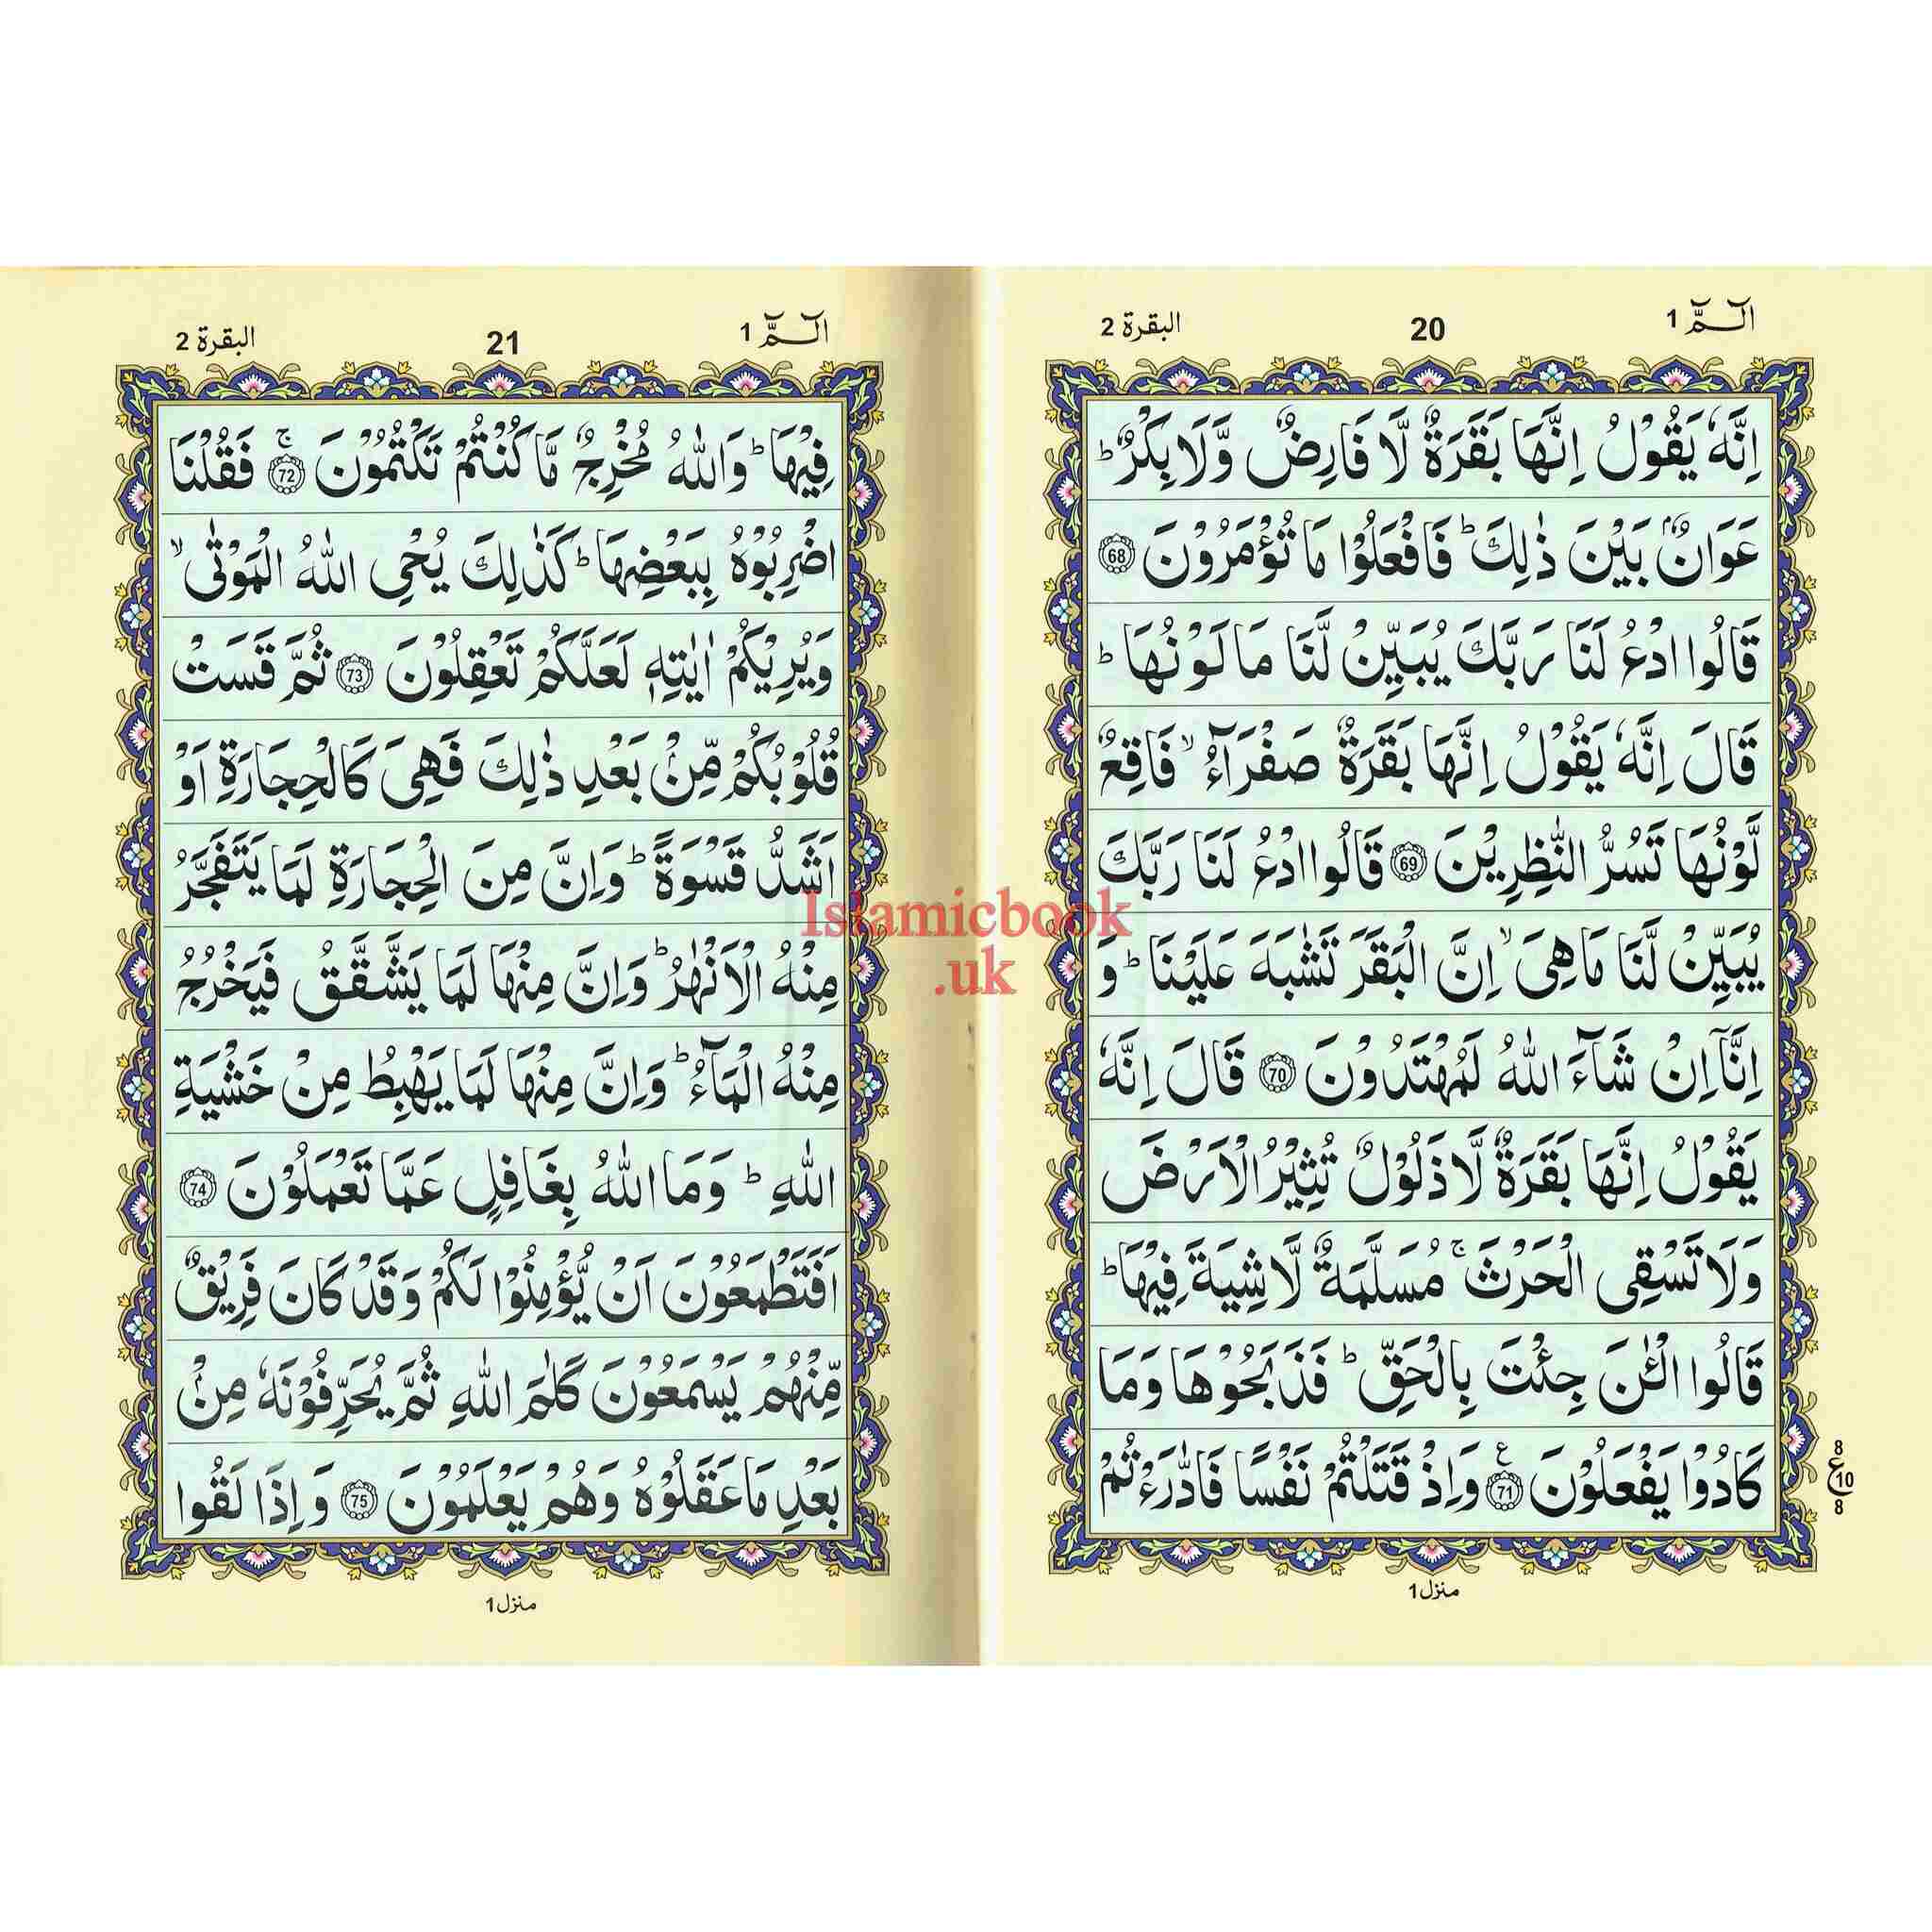 الٓمّٓ 1
20
البقرة 2
اِنَّهٗ يَقُوْلُ اِنَّهَا بَقَرَةٌ لَّا فَارِضٌ وَّلَا بِكْرٌ ؕ
عَوَانٌۢ بَيْنَ ذٰلِكَ ؕ فَافْعَلُوْا مَا تُؤْمَرُوْنَ 68
قَالُوا ادْعُ لَنَا رَبَّكَ يُبَيِّنْ لَّنَا مَا لَوْنُهَا ؕ
قَالَ اِنَّهٗ يَقُوْلُ اِنَّهَا بَقَرَةٌ صَفْرَآءُ ۙ فَاقِعٌ
لَّوْنُهَا تَسُرُّ النّٰظِرِيْنَ 69 قَالُوا ادْعُ لَنَا رَبَّكَ
يُبَيِّنْ لَّنَا مَا هِىَ ۙ اِنَّ الْبَقَرَ تَشٰبَهَ عَلَيْنَا ؕ وَ
اِنَّآ اِنْ شَآءَ اللّٰهُ لَمُهْتَدُوْنَ 70 قَالَ اِنَّهٗ
يَقُوْلُ اِنَّهَا بَقَرَةٌ لَّا ذَلُوْلٌ تُثِيْرُ الْاَرْضَ
وَلَا تَسْقِى الْحَرْثَ ۚ مُسَلَّمَةٌ لَّا شِيَةَ فِيْهَا ؕ
قَالُوا الْـٰٔنَ جِئْتَ بِالْحَقِّ ؕ فَذَبَحُوْهَا وَمَا
كَادُوْا يَفْعَلُوْنَ 71 ع وَاِذْ قَتَلْتُمْ نَفْسًا فَادّٰرَءْتُمْ
8
ع 10
8
منزل 1
الٓمّٓ 1
21
البقرة 2
فِيْهَا ؕ وَاللّٰهُ مُخْرِجٌ مَّا كُنْتُمْ تَكْتُمُوْنَ 72 ۚ فَقُلْنَا
اضْرِبُوْهُ بِبَعْضِهَا ؕ كَذٰلِكَ يُحْىِ اللّٰهُ الْمَوْتٰى ۙ
وَيُرِيْكُمْ اٰيٰتِهٖ لَعَلَّكُمْ تَعْقِلُوْنَ 73 ثُمَّ قَسَتْ
قُلُوْبُكُمْ مِّنْۢ بَعْدِ ذٰلِكَ فَهِىَ كَالْحِجَارَةِ اَوْ
اَشَدُّ قَسْوَةً ؕ وَاِنَّ مِنَ الْحِجَارَةِ لَمَا يَتَفَجَّرُ
مِنْهُ الْاَنْهٰرُ ؕ وَاِنَّ مِنْهَا لَمَا يَشَّقَّقُ فَيَخْرُجُ
مِنْهُ الْمَآءُ ؕ وَاِنَّ مِنْهَا لَمَا يَهْبِطُ مِنْ خَشْيَةِ
اللّٰهِ ؕ وَمَا اللّٰهُ بِغَافِلٍ عَمَّا تَعْمَلُوْنَ 74
اَفَتَطْمَعُوْنَ اَنْ يُّؤْمِنُوْا لَكُمْ وَقَدْ كَانَ فَرِيْقٌ
مِّنْهُمْ يَسْمَعُوْنَ كَلٰمَ اللّٰهِ ثُمَّ يُحَرِّفُوْنَهٗ مِنْۢ
بَعْدِ مَا عَقَلُوْهُ وَهُمْ يَعْلَمُوْنَ 75 وَاِذَا لَقُوا
منزل 1
Islamicbook
.uk